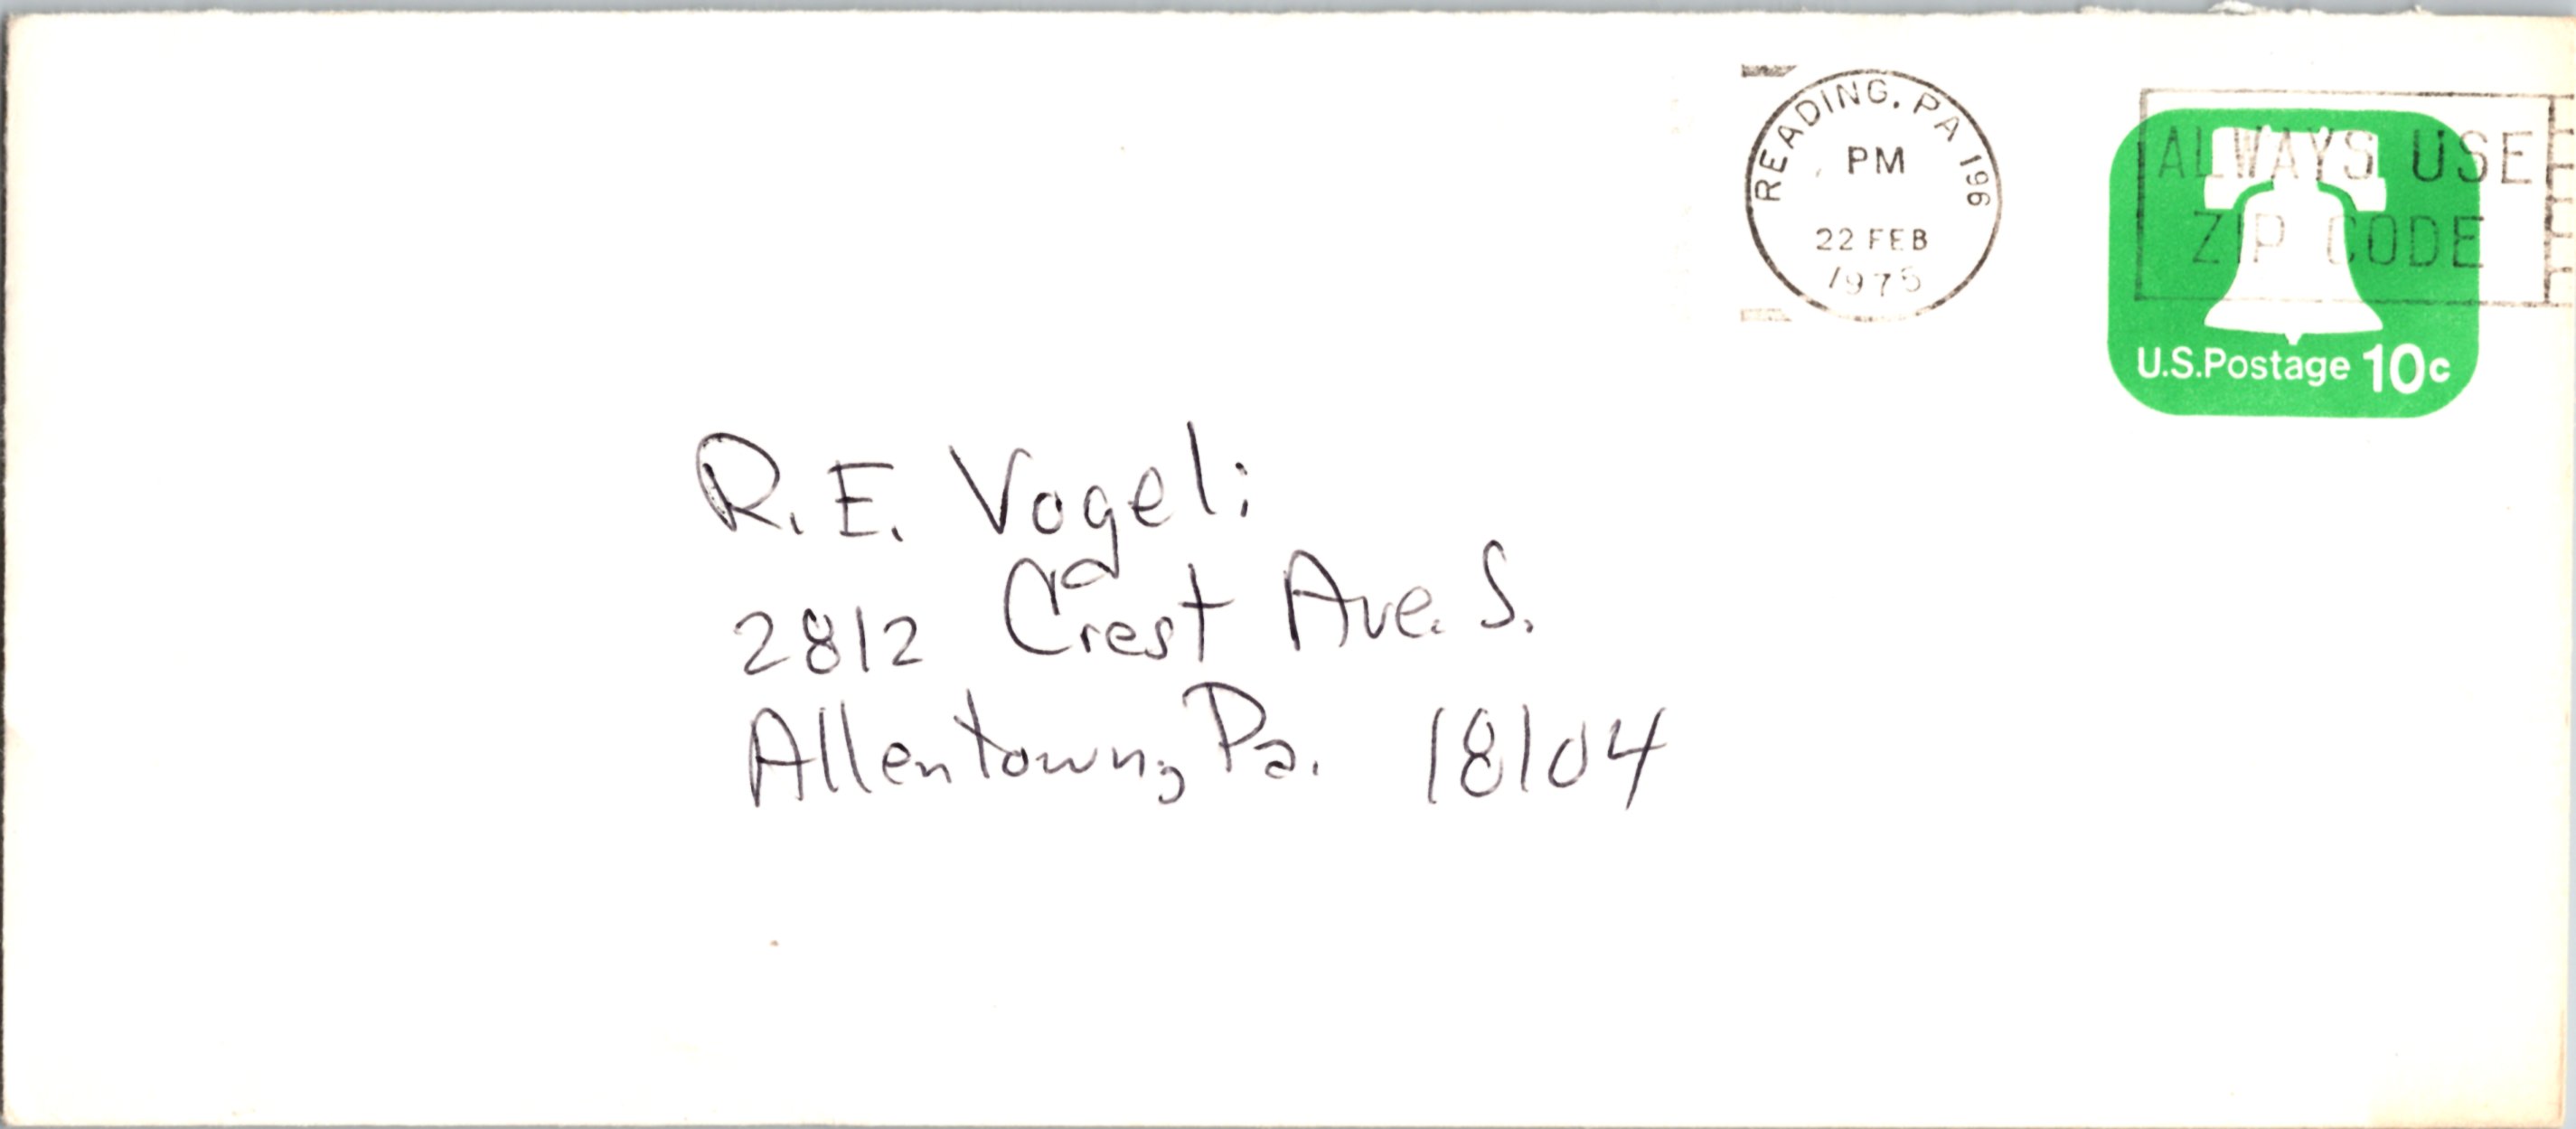 READING, PA 196
PM
22 FEB
1975
ALWAYS USE
ZIP CODE
U.S.Postage 10c
R. E. Vogel:
2812 Crest Ave. S.
Allentown, Pa. 18104